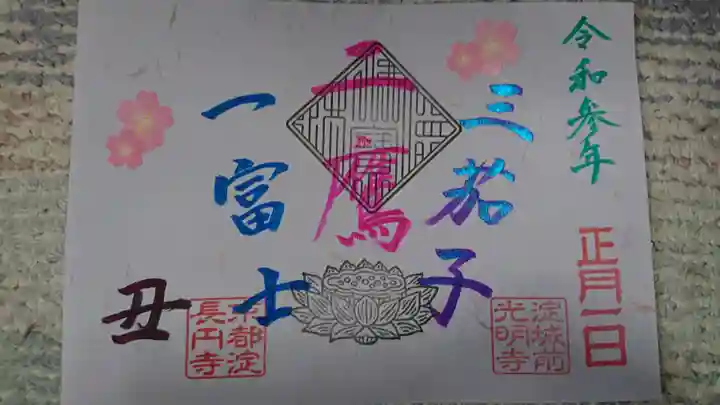 令和参年
正月一日
三茄子
二鷹
一富士
丑
淀城前
光明寺
京都淀
長円寺